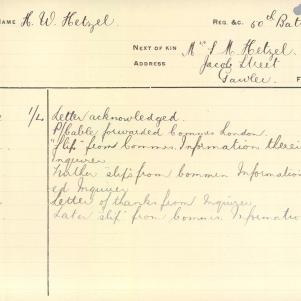 NAME H. W. Hetzel REG. &C. 50th Bat
NEXT OF KIN Mrs S M. Hetzel
ADDRESS Jacob Street
Gawler F
1/4 Letter acknowledged.
P/cable forwarded Commrs London
"slip" from Commrs. Information therei
Inquirer
Further slips from Commrs Information
ed Inquirer
Letter of thanks from Inquirer
Later slip from Commrs Informatio